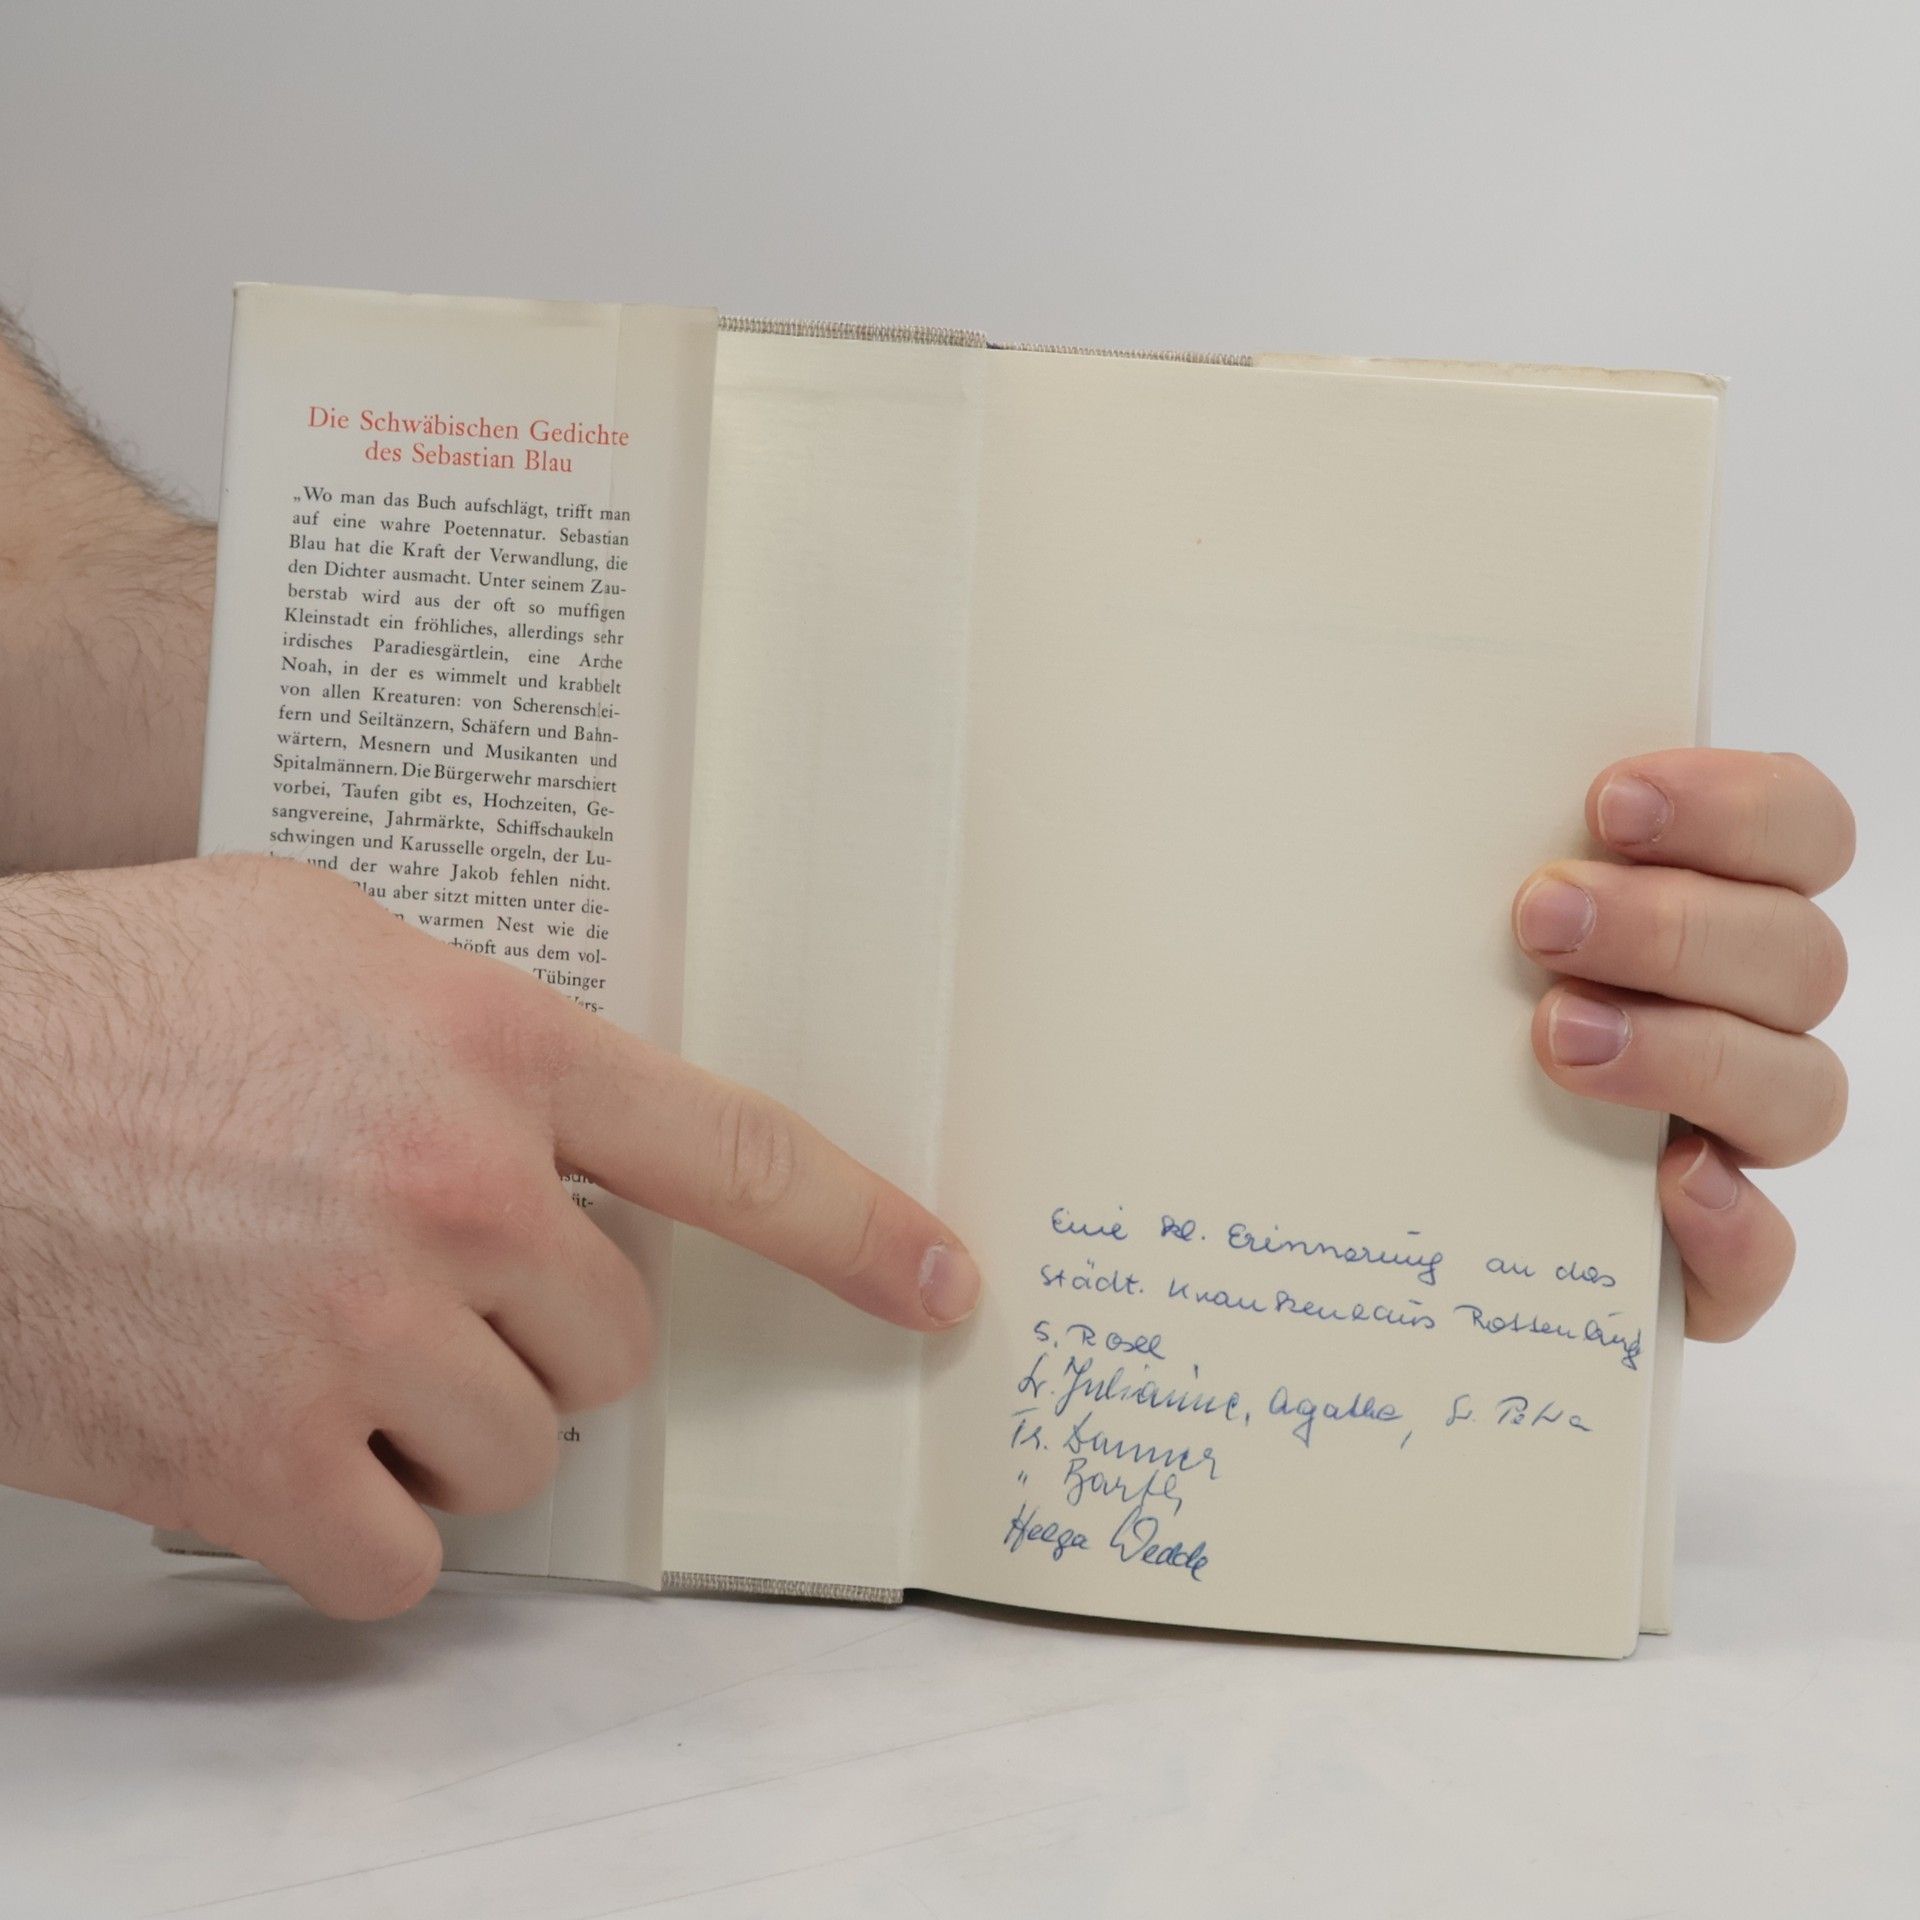 Die Schwäbischen Gedichte
des Sebastian Blau
„Wo man das Buch aufschlägt, trifft man
auf eine wahre Poetennatur. Sebastian
Blau hat die Kraft der Verwandlung, die
den Dichter ausmacht. Unter seinem Zau-
berstab wird aus der oft so muffigen
Kleinstadt ein fröhliches, allerdings sehr
irdisches Paradiesgärtlein, eine Arche
Noah, in der es wimmelt und krabbelt
von allen Kreaturen: von Scherenschlei-
fern und Seiltänzern, Schäfern und Bahn-
wärtern, Mesnern und Musikanten und
Spitalmännern. Die Bürgerwehr marschiert
vorbei, Taufen gibt es, Hochzeiten, Ge-
sangvereine, Jahrmärkte, Schiffschaukeln
schwingen und Karusselle orgeln, der Lu-
und der wahre Jakob fehlen nicht.
Blau aber sitzt mitten unter die-
warmen Nest wie die
schöpft aus dem vol-
Tübinger
Vers-
Eine kl. Erinnerung an das
städt. Krankenhaus Rottenburg
S. Rosel
Sr. Julianne, Agathe, Sr. Petra
Fr. Danner
" Barth,
Helga Wedde